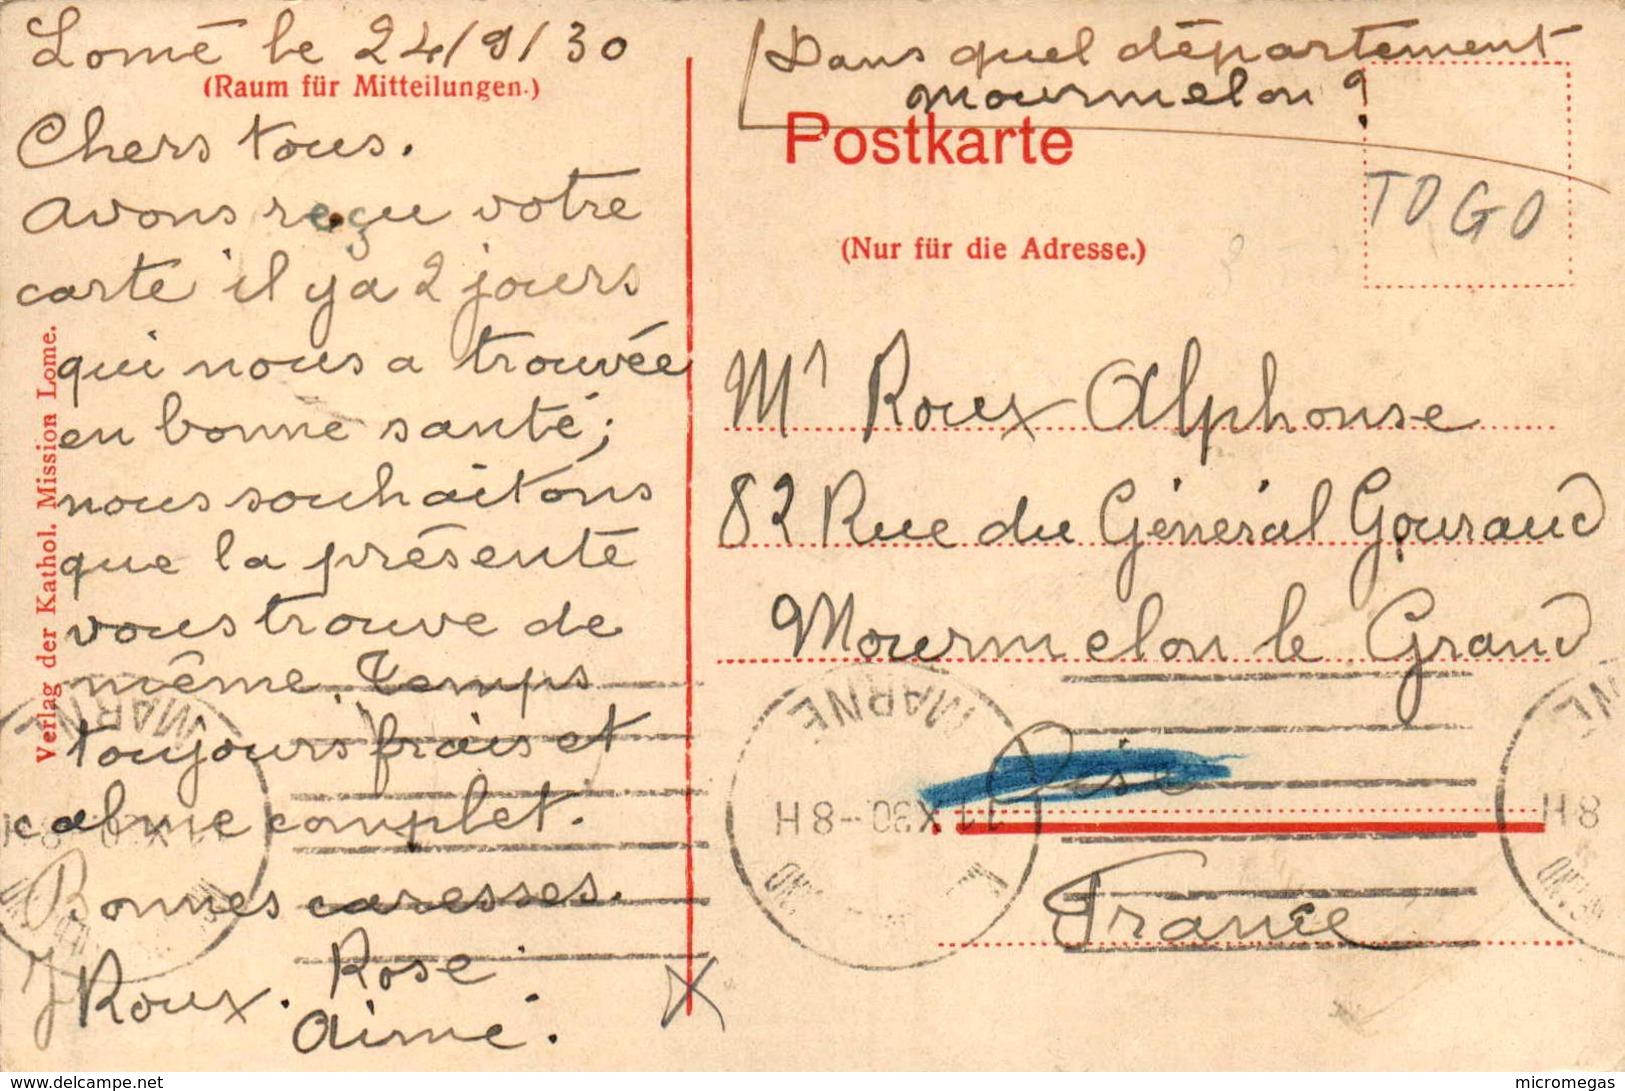 Lomé le 24/9/30
(Raum für Mitteilungen.)
Chers tous.
avons reçu votre
carte il y a 2 jours
qui nous a trouvée
en bonne santé;
nous souhaitons
que la présente
vous trouve de
même. Temps
toujours frais et
calme complet.
Bonnes caresses.
J Roux. Rose
Aimé.
Verlag der Kathol. Mission Lome.
Dans quel département
Mourmelon ?
Postkarte
TOGO
(Nur für die Adresse.)
Mr Roux Alphonse
82 Rue du Général Gouraud
Mourmelon le Grand
Oise
France
MARNE
8H-11 X 30
MARNE
8H-11 X 30
8H
www.delcampe.net
micromegas